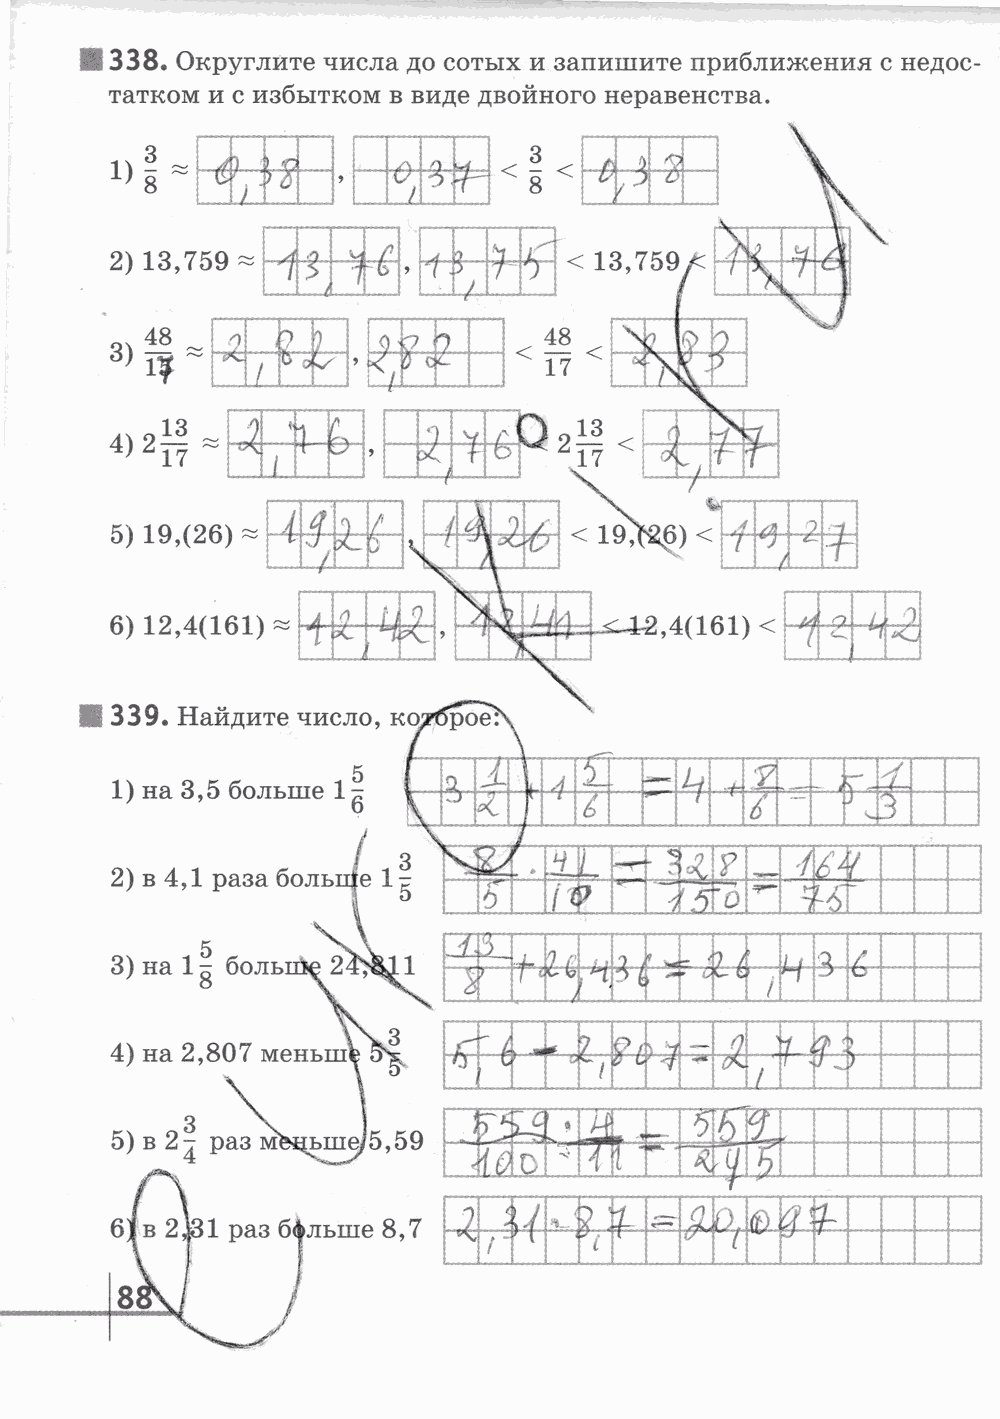 338. Округлите числа до сотых и запишите приближения с недос-
татком и с избытком в виде двойного неравенства.
1) 3/8 ≈ 0,38 , 0,37 < 3/8 < 0,38
2) 13,759 ≈ 13,76 , 13,75 < 13,759 < 13,76
3) 48/17 ≈ 2,82 , 2,82 < 48/17 < 2,83
4) 2 13/17 ≈ 2,76 , 2,76 < 2 13/17 < 2,77
5) 19,(26) ≈ 19,26 , 19,26 < 19,(26) < 19,27
6) 12,4(161) ≈ 12,42 , 12,41 < 12,4(161) < 12,42
339. Найдите число, которое:
1) на 3,5 больше 1 5/6 3 1/2 + 1 5/6 = 4 + 8/6 = 5 1/3
2) в 4,1 раза больше 1 3/5 8/5 · 41/10 = 328/150 = 164/75
3) на 1 5/8 больше 24,811 13/8 + 26,436 = 26,436
4) на 2,807 меньше 5 3/5 5,6 - 2,807 = 2,793
5) в 2 3/4 раз меньше 5,59 559/100 : 4/11 = 559/275
6) в 2,31 раз больше 8,7 2,31 · 8,7 = 20,097
88